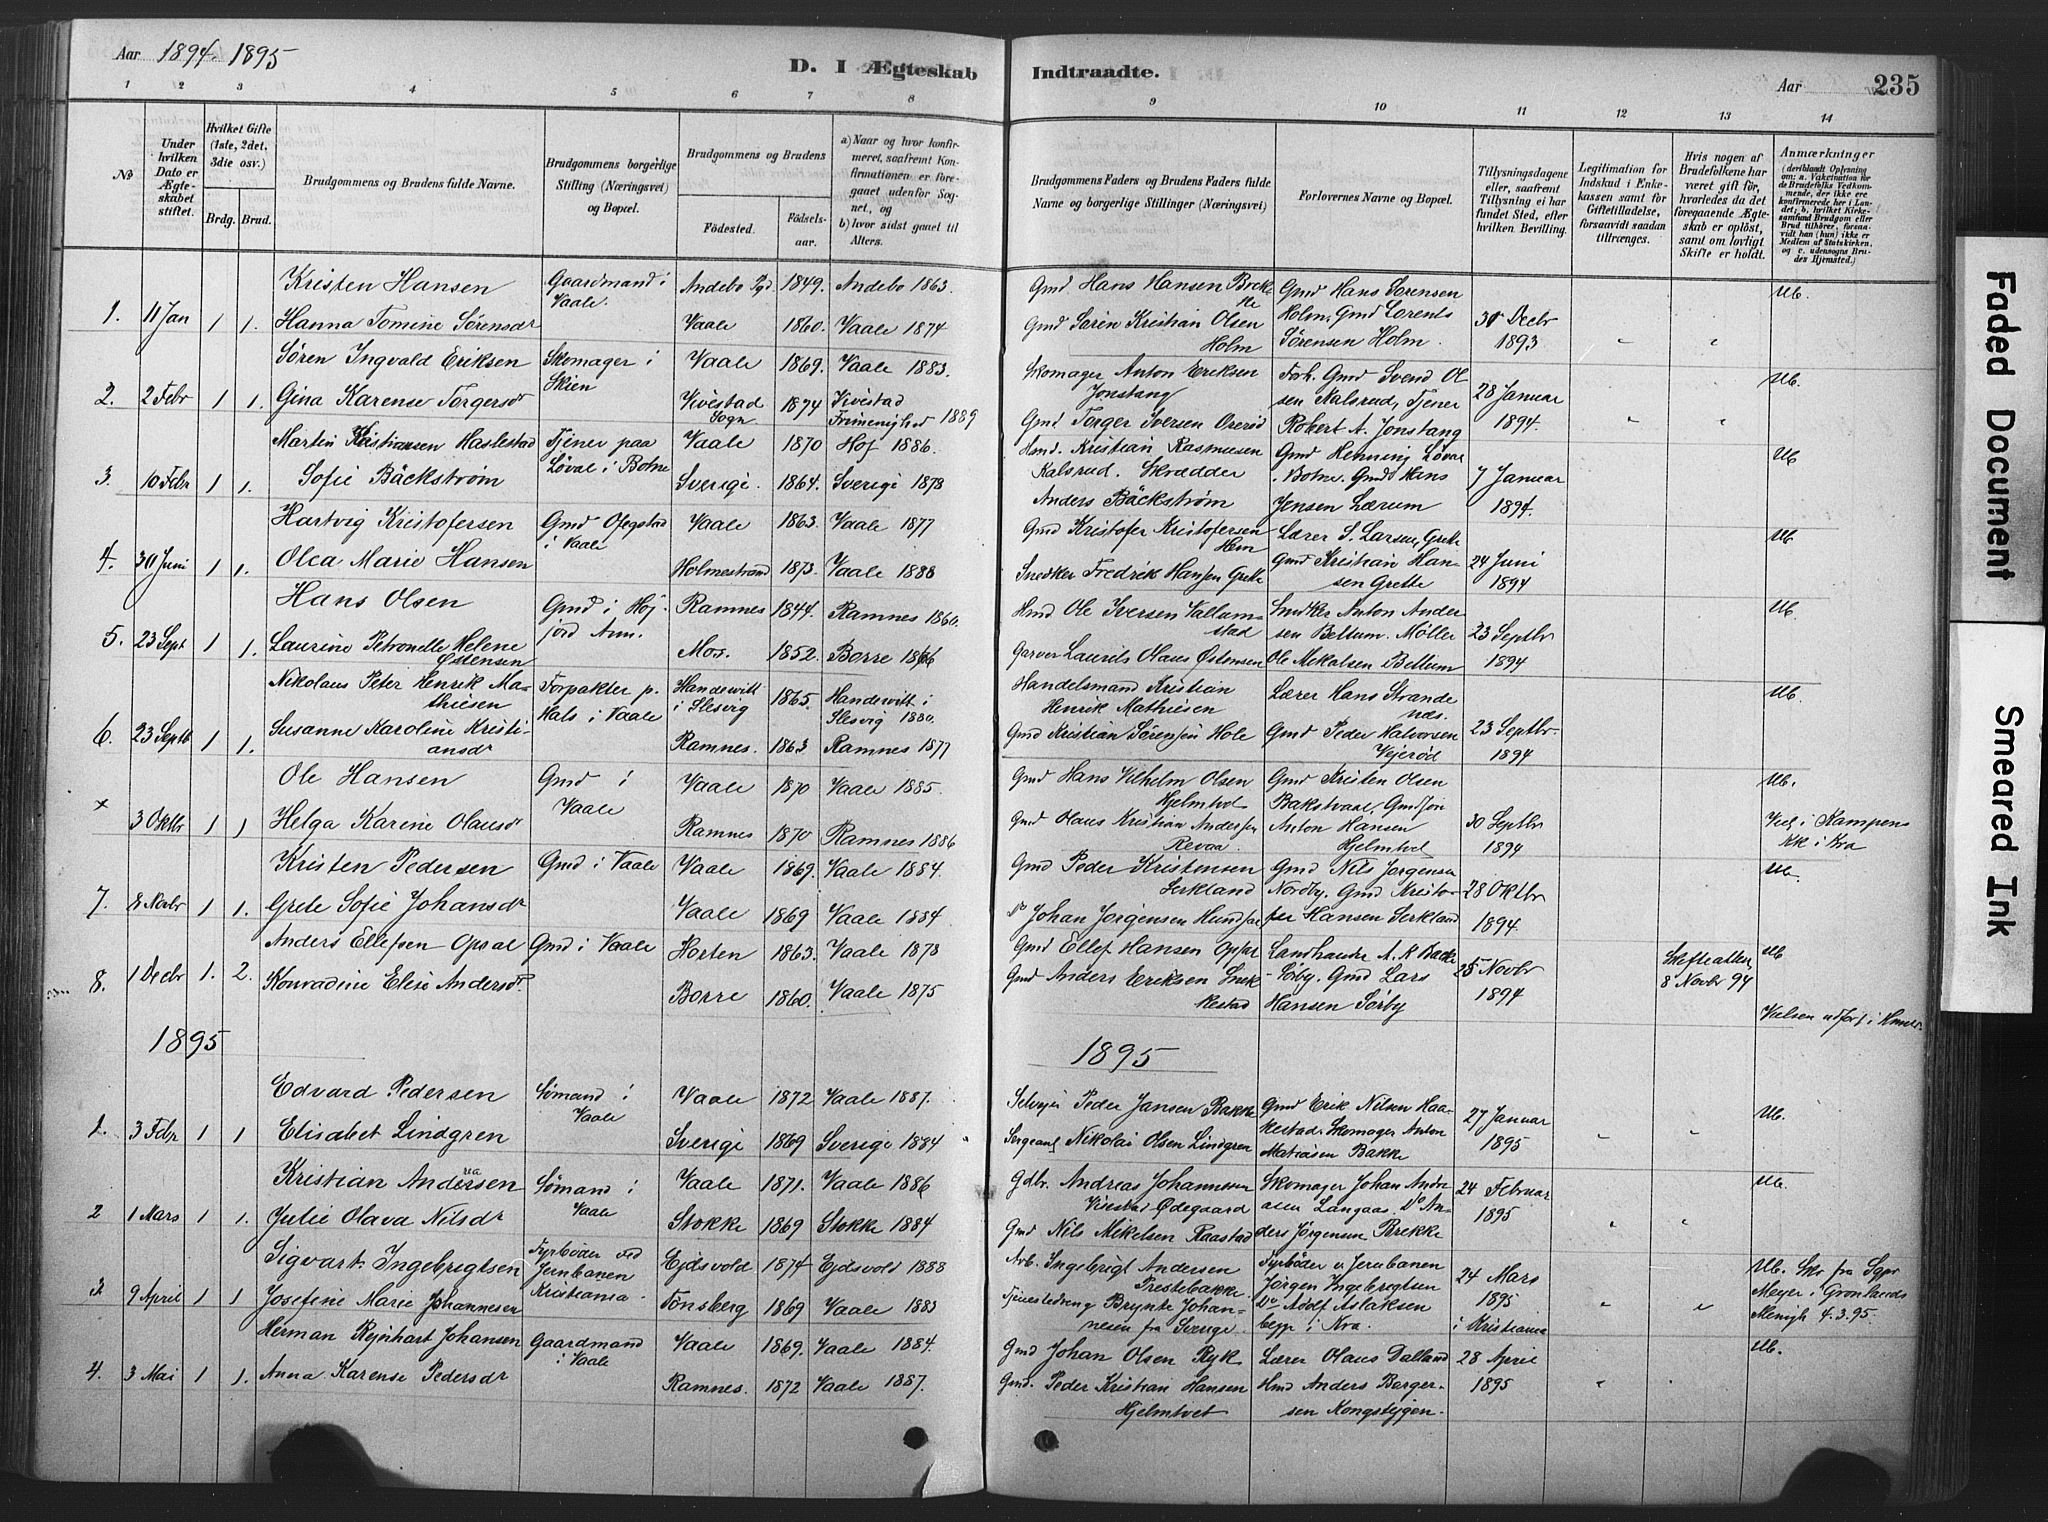 Aar 1894. 1895
D. I Ægteskab Indtraadte.
Aar 235
1 2 3 4 5 6 7 8 9 10 11 12 13 14
No
Under hvilken Dato er Ægteskabet stiftet.
Hvilket Gifte (1ste, 2det, 3die osv.)
Brdg. Brud.
Brudgommens og Brudens fulde Navne.
Brudgommens borgerlige Stilling (Næringsvei) og Bopæl.
Brudgommens og Brudens
Fødested. Fødselsaar.
a) Naar og hvor konfirmeret, saafremt Konfirmationen er foregaaet udenfor Sognet, og
b) hvor sidst gaaet til Alters.
Brudgommens Faders og Brudens Faders fulde Navne og borgerlige Stillinger (Næringsvei)
Forlovernes Navne og Bopæl.
Tillysningsdagene eller, saafremt Tillysning ei har fundet Sted, efter hvilken Bevilling.
Legitimation for Indskud i Enkekassen samt for Giftetilladelse, forsaavidt saadan tiltrænges.
Hvis nogen af Brudefolkene har været gift før, hvorledes da det foregaaende Ægteskab er opløst, samt om lovligt Skifte er holdt.
Anmærkninger
(deriblandt Oplysning om: a. Vakcination for de Brudefolks Vedkommende, der ikke ere konfirmerede her i Landet; b. hvilket Kirkesamfund Brudgom eller Brud tilhører, forsaavidt han (hun) ikke er Medlem af Statskirken, og c. udensogns Brudes Hjemsted.)
Kristen Hansen Gaardmand i Vaale. Andebo Pgd 1849. Andebo 1863. Gmd Hans Hansen Brekke Gmd Hans Sørensen Ub.
1. 11 Jan 1 1. Hanna Tomine Sørensdr Vaale 1860. Vaale 1874 Gmd Søren Kristian Olsen Holm Holm, Gmd Lorents Sørensen Holm. 31 Decbr 1893 " "
Søren Ingvald Eriksen Skomager i Skien Vaale 1869. Vaale 1883. Skomager Anton Eriksen Jonstang Forh. Gmd Svend Ol Ub.
2. 2 Febr 1 1. Gina Karense Torgersdr Kvestad Sogn. 1874 Kvestad Frimenighed 1889 Gmd Torger Iversen sen Kalsrud, Tjener Robert A. Jonstang 28 Januar 1894. " "
Martin Kristiansen Haslestad Tjener paa Løval i Botne Vaale 1870 Hof 1886. Hmd. Kristian Rasmussen Kalsrud. Skrædder Gmd Henning Løval Ub
3. 10 Febr 1 1. Sofie Bäckstrøm Sverige. 1864. Sverige 1878 Anders Bäckstrøm Botne. Gmd Hans Jensen Lærum 7 Januar 1894.
Hartvig Kristofersen Gmd Ofegstad i Vaale Vaale 1863. Vaale 1877 Gmd Kristofer Kristofersen Hem Lærer S. Larsen, Grette Ub.
4. 30 Juni 1 1. Olea Marie Hansen Holmestrand 1873. Vaale 1888 Snedker Fredrik Hansen Grette Gmd Kristian Hansen Grette 24 Juni 1894
Hans Olsen Gmd i Højjord Ann. Ramnes 1844. Ramnes 1860. Hmd Ole Iversen Vallumstad Snedker Anton Ander Ub.
5. 23 Sept 1 1. Laurine Petronelle Helene Østensen Mos. 1852. Borre 1866 Garver Laurits Olaus Østensen sen Bettum. Møller Ole Mikalsen Bettum 23 Septbr 1894
Nikolaus Peter Henrik Mathiesen Forpakter p. Hals i Vaale Handewitt i Slesvig 1865. Handewitt i Slesvig 1880. Handelsmand Kristian Henrik Mathiesen Lærer Hans Strandenæs. Ub.
6. 23 Septb 1 1. Susanne Karoline Kristiansdr Ramnes. 1863 Ramnes 1877 Gmd Kristian Sørensen Hole Gmd Peder Halvorsen Vejerød 23 Septbr. 1894
Ole Hansen Gmd i Vaale Vaale 1870 Vaale 1885. Gmd Hans Vilhelm Olsen Hjelmtvet Gmd Kristen Olsen Ub.
x 3 Oktbr 1 1 Helga Karine Olausdr Ramnes 1870 Ramnes 1886 Gmd Olaus Kristian Andersen Revaa. Bakstvaal, Anton Hansen Hjelmtvet 30 Septbr 1894 Viet i Kampens Kk i Kra
Kristen Pedersen Gmd i Vaale Vaale 1869. Vaale 1884. Gmd Peder Kristensen Serkland Gmd Nils Jørgensen Ub.
7. 8 Novbr 1 1. Grete Sofie Johansdr Vaale 1869 Vaale 1884 Do Johan Jørgensen Nordby. Gmd Kristofer Hansen Serkland 28 Oktbr 1894
Anders Ellefsen Opsal Gmd i Vaale Horten 1863. Vaale 1878 Gmd Ellef Hansen Opsal Landhandr A. M Bakke Skifteattest Ub
8. 1 Decbr 1. 2. Konradine Elise Andersdr. Borre 1860. Vaale 1875 Gmd Anders Eriksen Snekkestad Sørby. Gmd Lars Hansen Sørby 25 Novbr 1894 8 Novbr 94
Vielsen udført i
1895 1895
Edvard Pedersen Sømand i Vaale Vaale 1872 Vaale 1887. Selvejer Peder Jansen Bakke Gmd Erik Nilsen Haa Ub.
1. 3 Febr 1 1 Elisabet Lindgren Sverige 1869 Sverige 1884 Sergeant Nikolai Olsen Lindgren kestad. Skomager Anton Matiasen Bakke 27 Januar 1895 " "
Kristian Andersen rea Sømand i Vaale Vaale 1871. Vaale 1886 Gdbr. Andreas Johannesen Ødegaard Skomager Johan Andre Ub.
2 1 Mars 1 1. Julie Olava Nilsdr Stokke 1869 Stokke 1884 Gmd Nils Mikelsen Raastad asen Langaas. Do Anders Jørgensen Brekke 24 Februar 1895 " "
Sigvart Ingebrigtsen Fyrbøder ved Jernbanen Kristiania. Ejdsvold 1874 Ejdsvold 1888 Arb. Ingebrigt Andersen Prestebakke. Fyrbøder v. Jernbanen Ub. Skr fra Sgpr
3 9 April 1 1 Josefine Marie Johannesen Tønsberg 1869 Vaale 1883 Brynte Johannesen fra Sverige. Jørgen Ingebrigtsen Do Adolf Aslaksen begge i Kra. 24 Mars 1895 i Kristiania " " Meyer i Grønlands Menigh 4.3.95.
Herman Rejnhart Johansen Gaardmand i Vaale Vaale 1869. Vaale 1884. Gmd Johan Olsen Ryk Lærer Olaus Dalland Ub.
4. 3 Mai 1 1. Anna Karense Pedersdr Ramnes. 1872 Vaale 1887. Gmd. Peder Kristian Hansen Hjelmtvet Hmd Anders Borgersen Kongstejgen. 28 April 1895 "
Faded Document
Smeared Ink